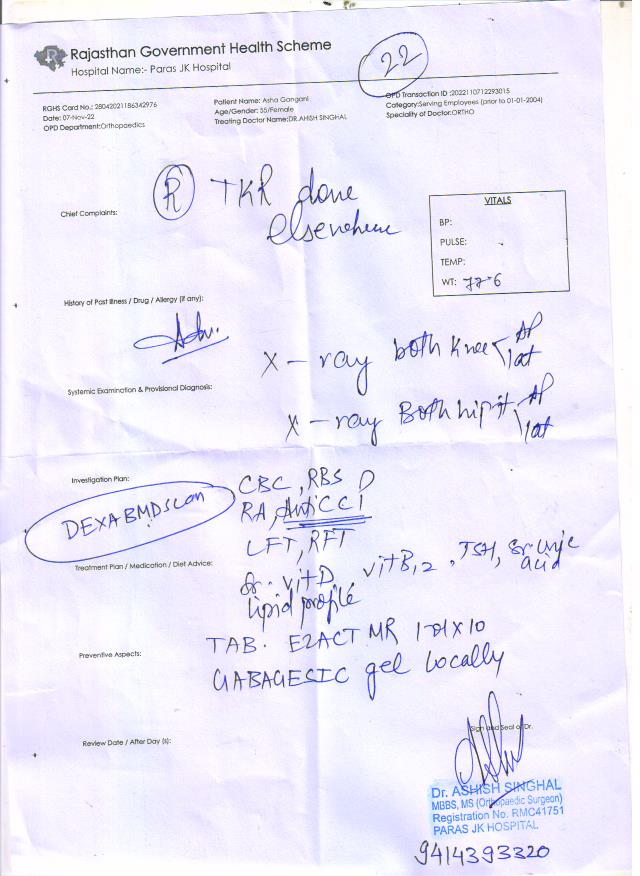 Rajasthan Government Health Scheme
Hospital Name:- Paras JK Hospital
22
RGHS Card No.: 28042021186342976
Date: 07-Nov-22
OPD Department:Orthopaedics
Patient Name: Asha Gangani
Age/Gender: 55/Female
Treating Doctor Name:DR.AHISH SINGHAL
OPD Transaction ID :2022110712293015
Category:Serving Employees (prior to 01-01-2004)
Speciality of Doctor:ORTHO
Chief Complaints:
R TKR done
elsewhere
VITALS
BP:
PULSE:
TEMP:
WT: 77-6
History of Past Illness / Drug / Allergy (if any):
Adv.
X-ray both Knee AP
lat
Systemic Examination & Provisional Diagnosis:
X-ray Both hip AP
lat
Investigation Plan:
DEXA BMD scan
CBC, RBS
RA, Anti CCP
LFT, RFT
Treatment Plan / Medication / Diet Advice:
Sr. vit D, vit B12, TSH, Sr uric
acid
lipid profile
Preventive Aspects:
TAB. EZACT MR X 10
GABAGESIC gel locally
Sign and Seal of Dr.
Review Date / After Day (s):
Dr. ASHISH SINGHAL
MBBS, MS (Orthopaedic Surgeon)
Registration No. RMC41751
PARAS JK HOSPITAL
9414393320